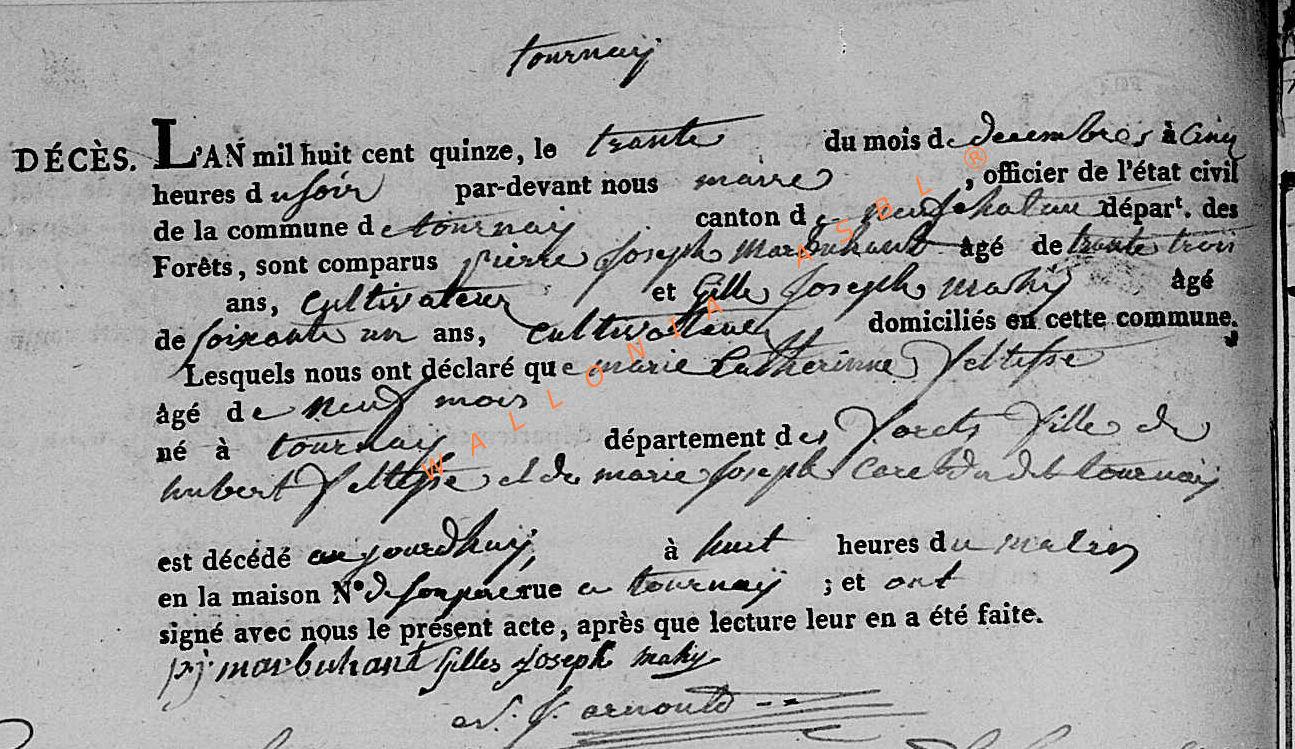 tournaÿ
DÉCÈS. L'AN mil huit cent quinze, le trante du mois de decembres à cinq
heures du soir par-devant nous maire , officier de l'état civil
de la commune de tournaÿ canton de neufchatau départ. des
Forêts, sont comparus pierre joseph marbuhant âgé de trante trois
ans, cultivateur et Gille joseph mahÿ âgé
de soixante un ans, cultivateur domiciliés en cette commune.
Lesquels nous ont déclaré que marie Catherinne
âgé de neuf mois
né à tournaÿ département des forets fille de
hubert et de marie joseph dudit tournaÿ
est décédé aujourdhuÿ, à huit heures du matin
en la maison N° de son pere rue a tournaÿ ; et ont
signé avec nous le présent acte, après que lecture leur en a été faite.
pj marbuhant Gilles joseph mahy
arnould
WALLONIA ASBL ®